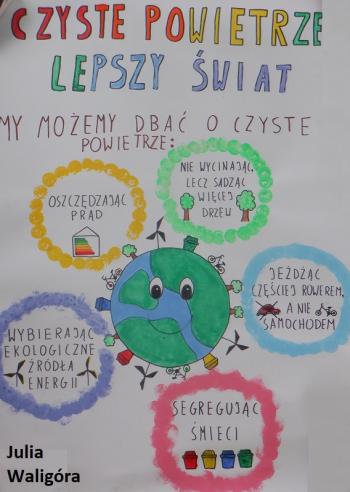 CZYSTE POWIETRZE
LEPSZY ŚWIAT
MY MOŻEMY DBAĆ O CZYSTE
POWIETRZE:
OSZCZĘDZAJĄC
PRĄD
NIE WYCINAJĄC,
LECZ SADZĄC
WIĘCEJ
DRZEW
JEŻDŻĄC
CZĘŚCIEJ ROWEREM,
A NIE
SAMOCHODEM
WYBIERAJĄC
EKOLOGICZNE
ŹRÓDŁA
ENERGII
SEGREGUJĄC
ŚMIECI
Julia
Waligóra